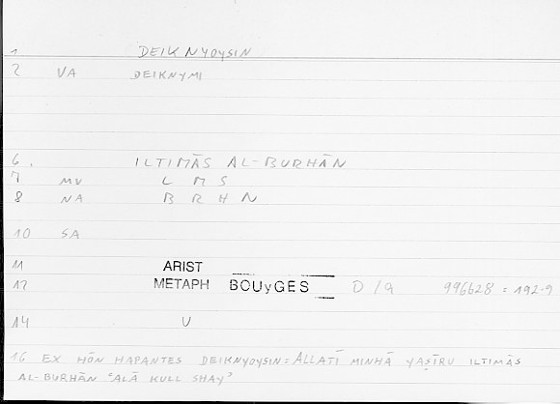 1 DEIKNYOYSIN
2 VA DEIKNYMI
6. ILTIMĀS AL-BURHĀN
7 MV L M S
8 NA B R H N
10 SA
11 ARIST
12 METAPH BOUyGES D/a 996b28 = 192-9
14 V
16 EX HŌN HAPANTES DEIKNYOYSIN = ALLATĪ MINHĀ YAṢĪRU ILTIMĀS
AL-BURHĀN ʿALĀ KULL SHAYʾ